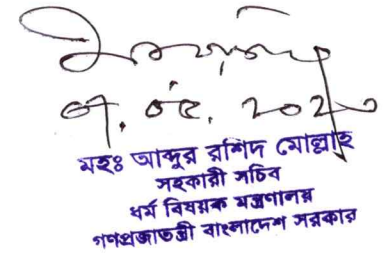 ০৭. ০৫. ২০২০
মহঃ আব্দুর রশিদ মোল্লাহ
সহকারী সচিব
ধর্ম বিষয়ক মন্ত্রণালয়
গণপ্রজাতন্ত্রী বাংলাদেশ সরকার